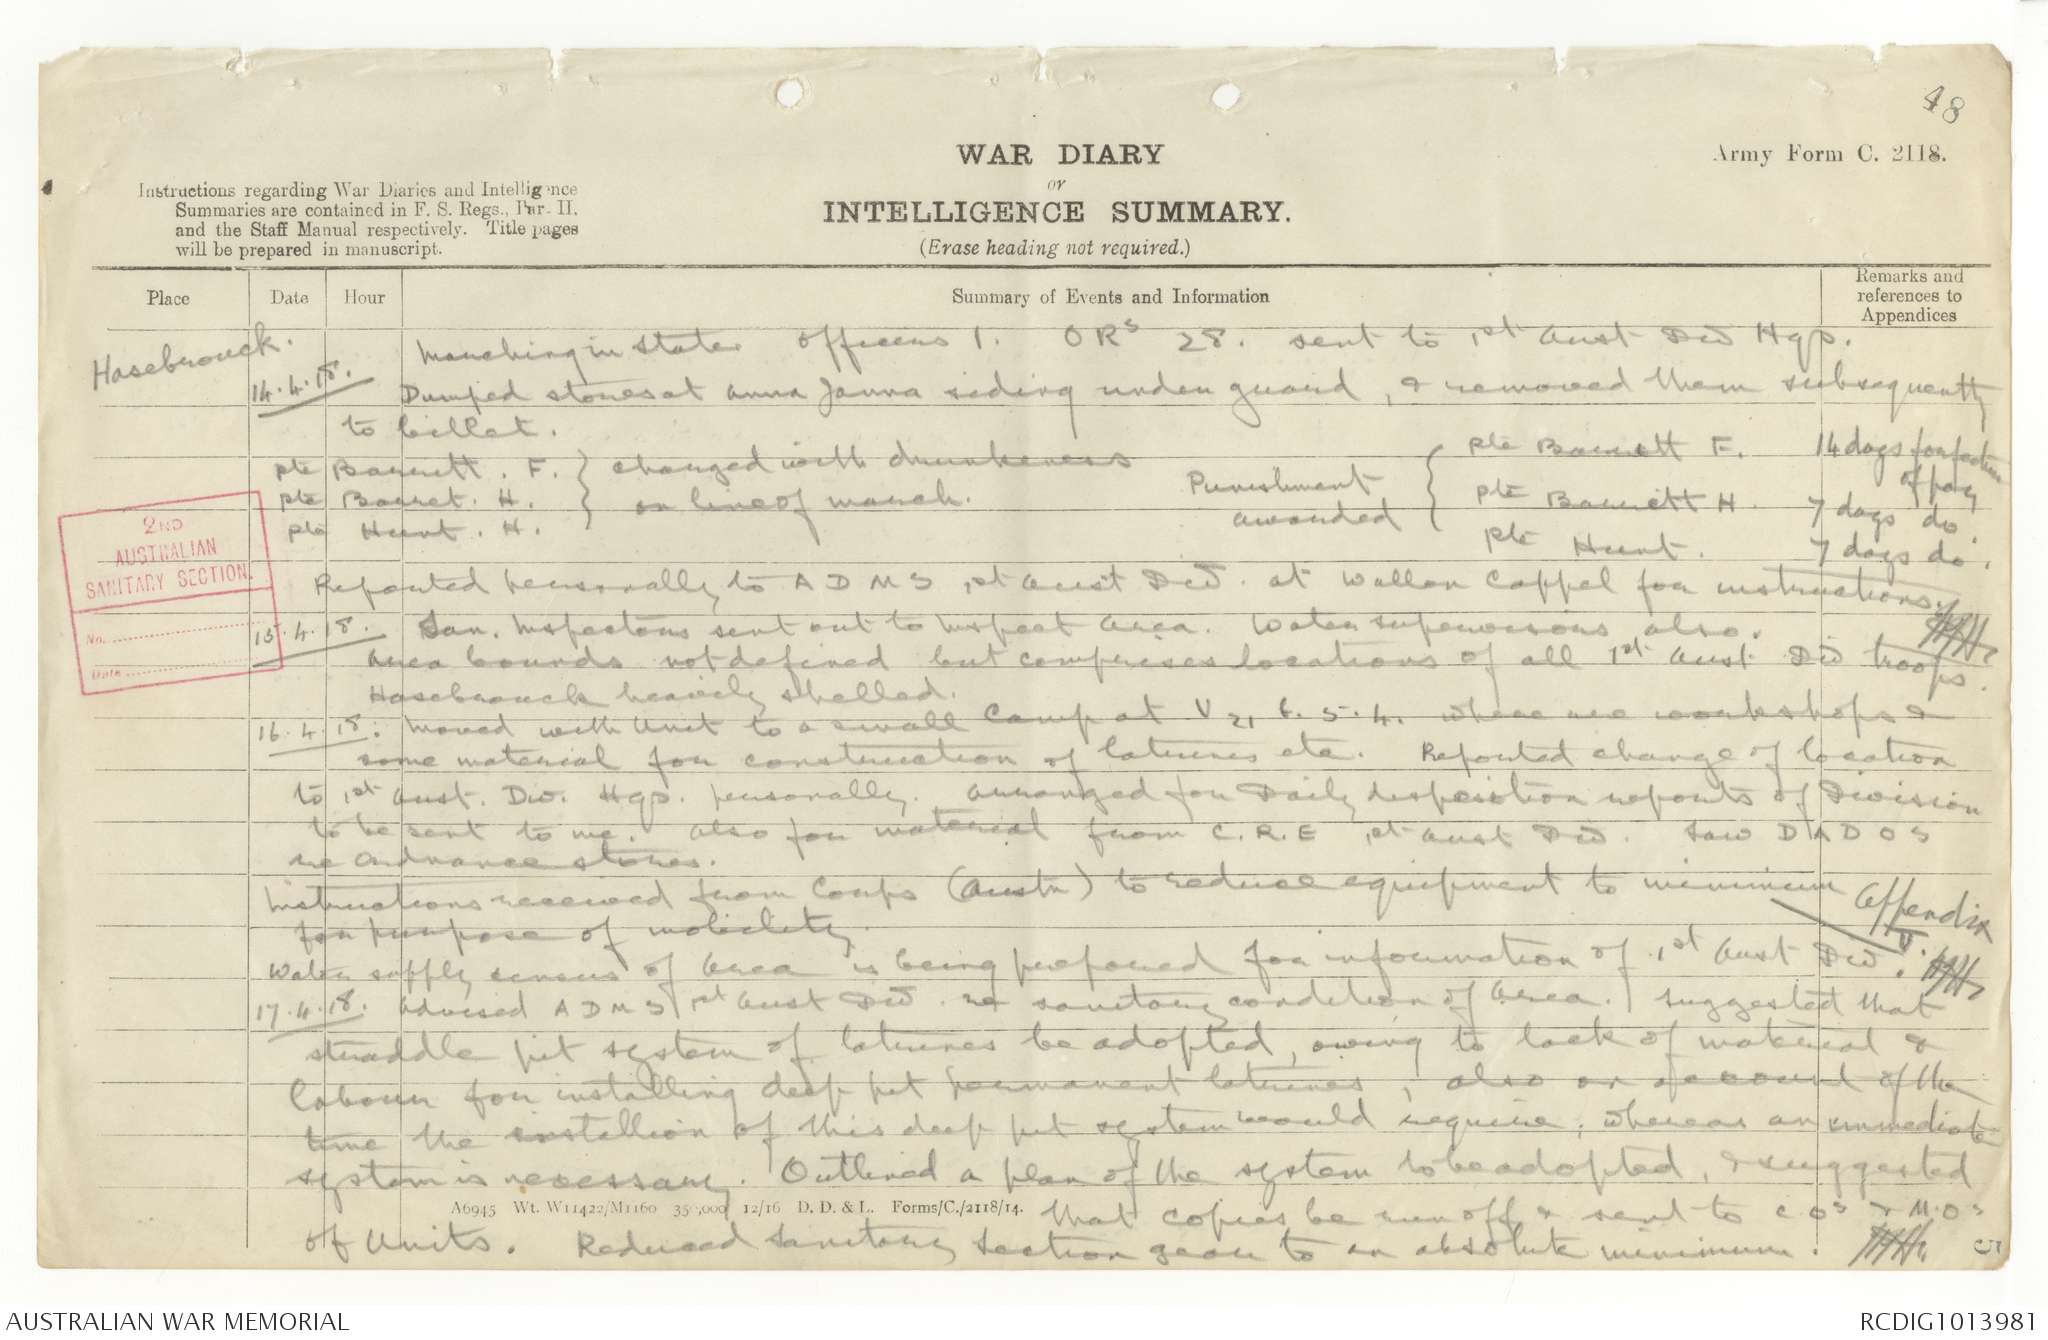 48
WAR DIARY
or
INTELLIGENCE SUMMARY.
(Erase heading not required.)
Army Form C. 2118.
Instructions regarding War Diaries and Intelligence
Summaries are contained in F. S. Regs., Par. II.
and the Staff Manual respectively. Title pages
will be prepared in manuscript.
Place
Date
Hour
Summary of Events and Information
Remarks and
references to
Appendices
Hasebrouck.
14.4.18. Marching in state Officers 1. ORs 28. sent to 1st Aust Div Hqs.
Dumped stores at Anna Janna siding under guard, & removed them subsequently
to billet.
Pte Barrett. F. } charged with drunkeness Punishment { Pte Barrett F. 14 days forfeiture of pay
Pte Barret. H. } on line of march. awarded { Pte Barrett H. 7 days do
Pte Hunt. H. } { Pte Hunt. 7 days do.
Reported personally to ADMS 1st Aust Div. at Wallon Cappel for instructions.
2ND
AUSTRALIAN
SANITARY SECTION.
No.
Date
15.4.18. San. Inspectors sent out to inspect area. Water supervisors also.
Area bounds not defined but comprises locations of all 1st Aust Div troops.
Hasebrouck heavily shelled.
16.4.18. Moved with Unit to a small Camp at V 21 b. 5.4. where are workshops &
some material for construction of latrines etc. Reported change of location
to 1st Aust. Div. Hqs. personally. Arranged for Daily disposition reports of Division
to be sent to me. Also for material from C.R.E 1st Aust Div. Saw DADOS
re Ordnance stores.
Instructions received from Corps (Austn) to reduce equipment to minimum
for purpose of mobility.
Appendix
V.
Water supply census of Area is being prepared for information of 1st Aust Div.
17.4.18. Advised ADMS 1st Aust Div. re sanitary condition of Area. Suggested that
straddle pit system of latrines be adopted, owing to lack of material &
labour for installing deep pit permanent latrines, also on account of the
time the installion of this deep pit system would require, whereas an immediate
system is necessary. Outlined a plan of the system to be adopted, & suggested
A6945 Wt. W11422/M1160 350,000 12/16 D. D. & L. Forms/C./2118/14.
that copies be run off & sent to COs & M.Os
of Units. Reduced Sanitary Section gear to an absolute minimum.
AUSTRALIAN WAR MEMORIAL
RCDIG1013981